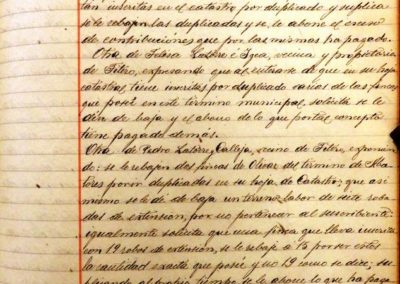 tán inscritas en el catastro por duplicado y suplica
se le rebajen las duplicadas y se le abone el exceso
de contribuciones que por las mismas ha pagado.
Otra de Felisa Latorre é Igea, vecina y propietaria
de Fitero, expresando que al enterarse de que en su hoja
catastral tiene inscritas por duplicado varias de las fincas
que posee en este término municipal, solicita se le
den de baja y el abono de lo que por tal concepto
tiene pagado demás.
Otra de Pedro Latorre Calleja, vecino de Fitero, exponien
do: se le rebajen dos fincas de Olivar del termino de
por duplicadas en su hoja de Catastro; que asi
mismo se le de de baja un terreno labor de siete roba
das de extension, por no pertenecer al suscribiente:
igualmente solicita que una finca que lleva inscrita
con 19 robos de extensión, se le rebaje á 15 por ser esta
la cantidad exacta que posee y no 19 como se dice; su
plicando al propio tiempo se le abone lo que ha paga